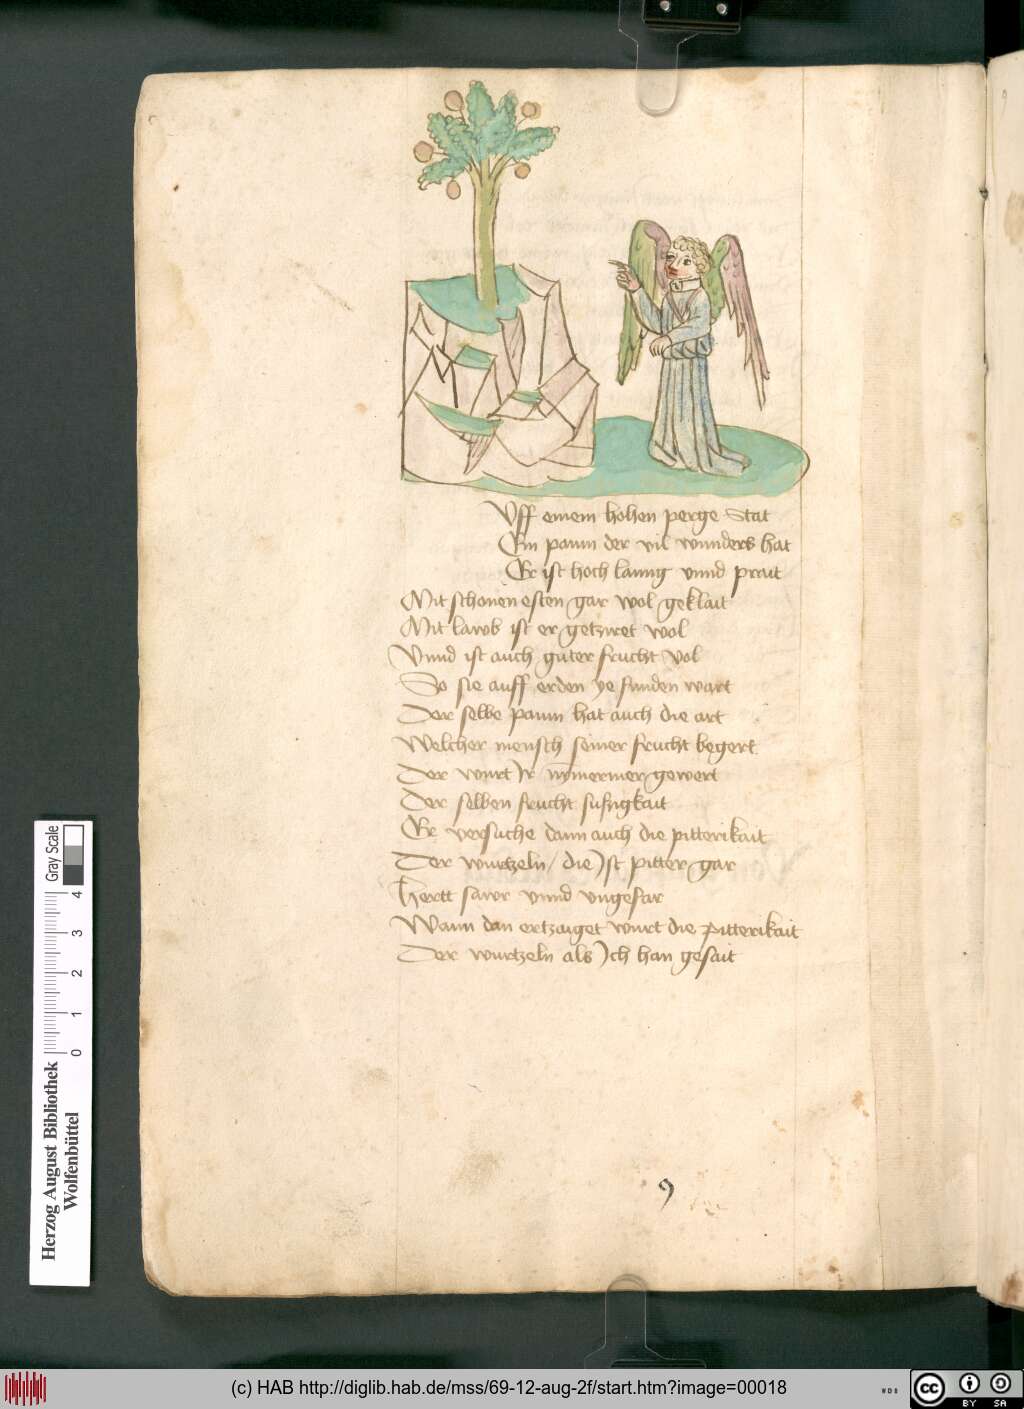 Vff einem hohen perge Stat
Ein paum der vil wunders hat
Er ist hoch lanng vnnd prait
Mit schonen esten gar wol geklait
Mit lawb ist er getziret wol
Vnnd ist auch guter frucht vol
So sie auff erden ye funden wart
Der selbe paum hat auch die art
Welcher mensch seiner frucht begert
Der wurt Ir nymermer gewert
Der selben frucht sussigkait
Er versuche dann auch die pitterikait
Der wurtzeln / die Ist pitter gar
Hertt sawr vnnd vngefar
Wann dan ertzaiget wurt die pitterikait
Der wurtzeln als Ich han gesait
9
Gray Scale
4
3
2
1
0
Herzog August Bibliothek
Wolfenbüttel
(c) HAB http://diglib.hab.de/mss/69-12-aug-2f/start.htm?image=00018
WDB
cc
BY SA